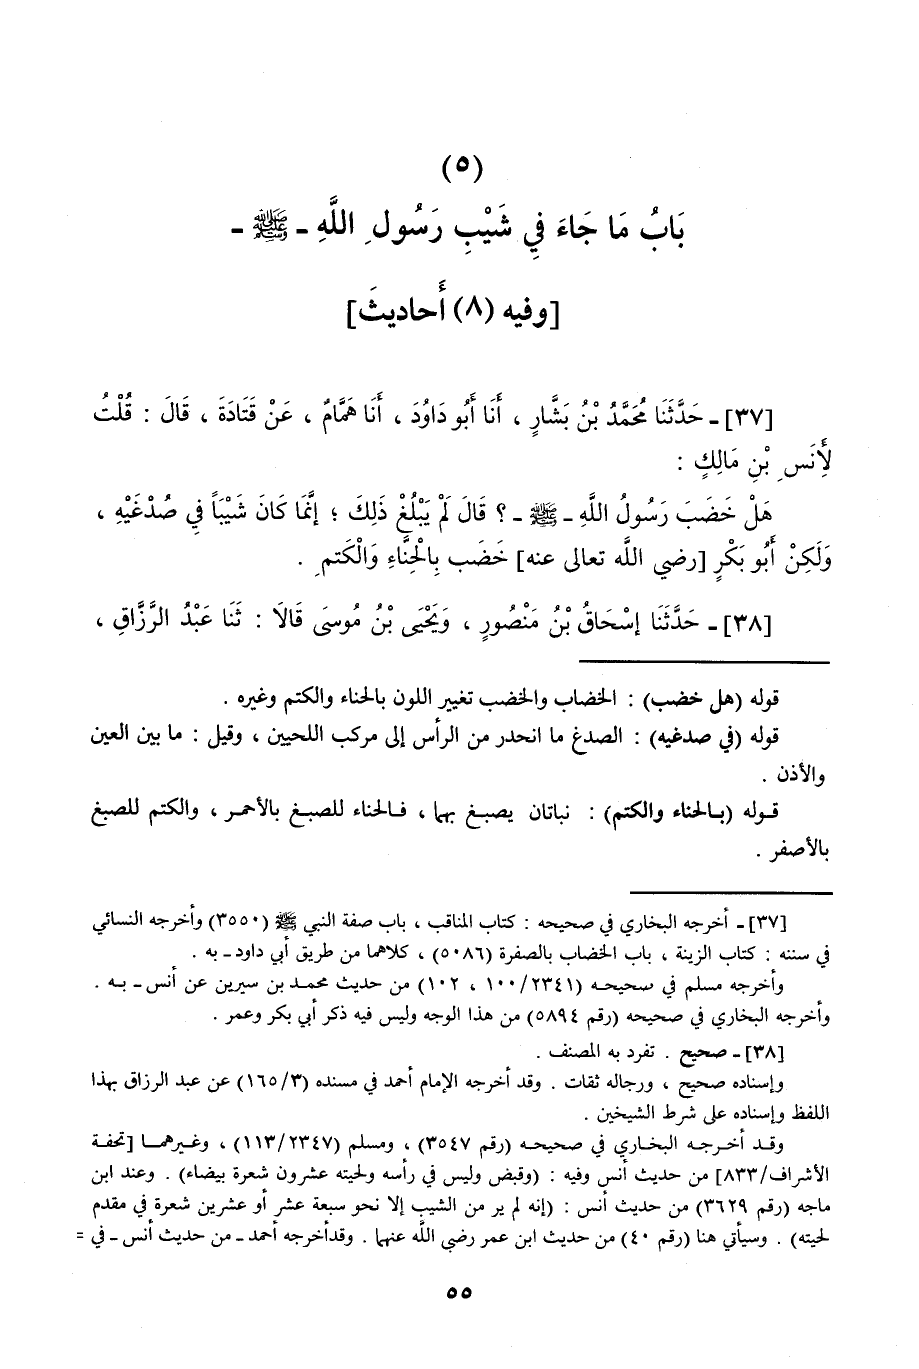 (٥)
بَابُ مَا جَاءَ فِي شَيْبِ رَسُولِ اللَّهِ ـ ﷺ ـ
[وفيه (٨) أَحاديثَ]
[٣٧] ـ حَدَّثَنَا مُحَمَّدُ بْنُ بَشَّارٍ ، أَنَا أَبُو دَاوُدَ ، أَنَا هَمَّامٌ ، عَنْ قَتَادَةَ ، قَالَ : قُلْتُ
لِأَنَسِ بْنِ مَالِكٍ :
هَلْ خَضَبَ رَسُولُ اللَّهِ ـ ﷺ ـ ؟ قَالَ لَمْ يَبْلُغْ ذَلِكَ ؛ إِنَّمَا كَانَ شَيْبَاً فِي صُدْغَيْهِ ،
وَلَكِنْ أَبُو بَكْرٍ [رضي اللَّه تعالى عنه] خَضَب بِالْحِنَّاءِ وَالْكَتَمِ .
[٣٨] ـ حَدَّثَنَا إِسْحَاقُ بْنُ مَنْصُورٍ ، وَيَحْيَى بْنُ مُوسَى قَالَا : ثَنَا عَبْدُ الرَّزَّاقِ ،
قوله (هل خضب) : الخضاب والخضب تغيير اللون بالحناء والكتم وغيره .
قوله (في صدغيه) : الصدغ ما انحدر من الرأس إلى مركب اللحيين ، وقيل : ما بين العين
والأذن .
قوله (بالحناء والكتم) : نباتان يصبغ بهما ، فالحناء للصبغ بالأحمر ، والكتم للصبغ
بالأصفر .
[٣٧] ـ أخرجه البخاري في صحيحه : كتاب المناقب ، باب صفة النبي ﷺ (٣٥٥٠) وأخرجه النسائي
في سننه : كتاب الزينة ، باب الخضاب بالصفرة (٥٠٨٦) ، كلاهما من طريق أبي داود ـ به .
وأخرجه مسلم في صحيحه (١٠٠/٢٣٤١ ، ١٠٢) من حديث محمد بن سيرين عن أنس ـ به .
وأخرجه البخاري في صحيحه (رقم ٥٨٩٤) من هذا الوجه وليس فيه ذكر أبي بكر وعمر .
[٣٨] ـ صحيح . تفرد به المصنف .
وإسناده صحيح ، ورجاله ثقات . وقد أخرجه الإمام أحمد في مسنده (١٦٥/٣) عن عبد الرزاق بهذا
اللفظ وإسناده على شرط الشيخين .
وقد أخرجه البخاري في صحيحه (رقم ٣٥٤٧) ، ومسلم (١١٣/٢٣٤٧) ، وغيرهما [تحفة
الأشراف/٨٣٣] من حديث أنس وفيه : (وقبض وليس في رأسه ولحيته عشرون شعرة بيضاء) . وعند ابن
ماجه (رقم ٣٦٢٩) من حديث أنس : (إنه لم ير من الشيب إلا نحو سبعة عشر أو عشرين شعرة في مقدم
لحيته) . وسيأتي هنا (رقم ٤٠) من حديث ابن عمر رضي اللَّه عنهما . وقدأخرجه أحمد ـ من حديث أنس ـ في =
٥٥